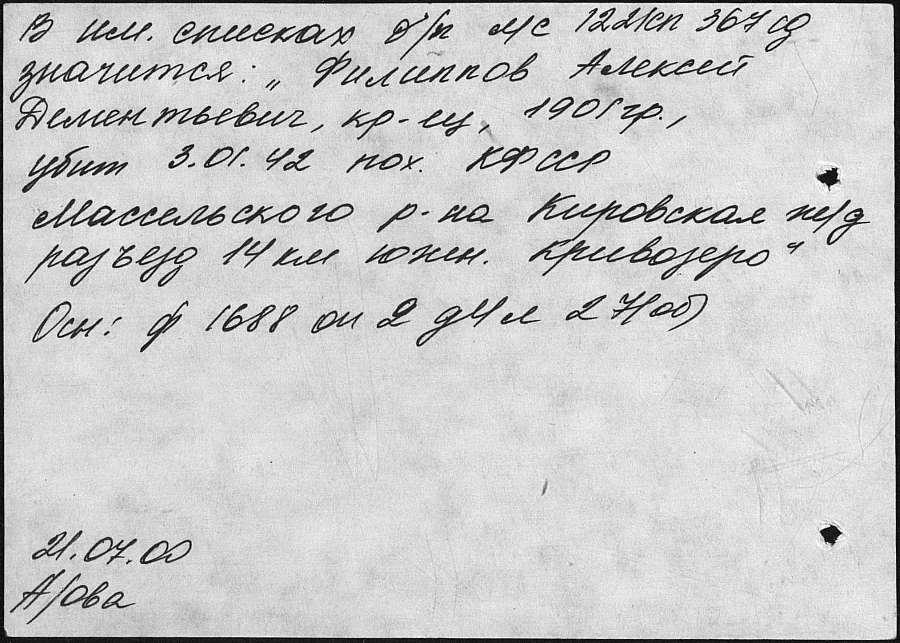 В им. списках б/п м/с 1221сп 367 сд
значится: „Филиппов Алексей
Дементьевич, кр-ец, 1901гр.,
убит 3.01.42 пох. КФССР
Массельского р-на Кировская ж/д
разъезд 14 км южн. Кривозеро"
Осн: ф 1688 оп 2 д 4 л 27(об)
21.07.00